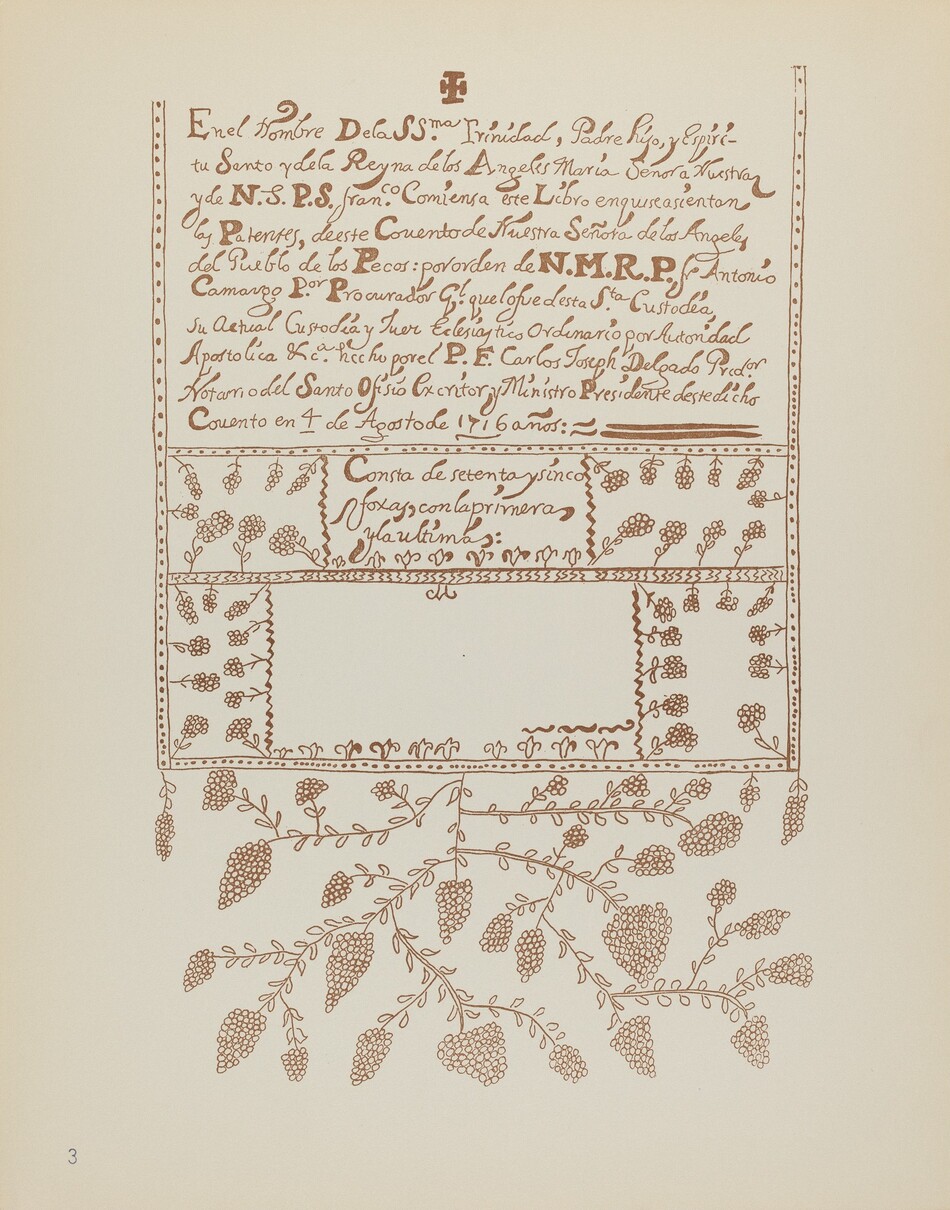 En el Nombre De la SS.ma Trinidad, Padre hijo, y Espiri-
tu Santo y dela Reyna delos Angeles Maria Señora Nuestra
y de N.S. P.S. fran.co Comiensa este Libro enquiseasientan
las Patentes, de este Convento de Nuestra Señora de los Angeles
del Pueblo de los Pecos: por orden de N.M.R.P. fr Antonio
Camargo P.or Procurador G.l que lo fue desta S.ta Custodia,
su Actual Custodia y Juez Eclesiastico Ordinario por Autoridad
Apostolica &c.a heccho por el P. F. Carlos Joseph Delgado Pred.or
Notarrio del Santo Ofisio Excritor y Ministro Presidente destedicho
Couento en 4 de Agosto de 1716 años:
Consta de setenta y sinco
foxas, con la primera
y la ultima:
3